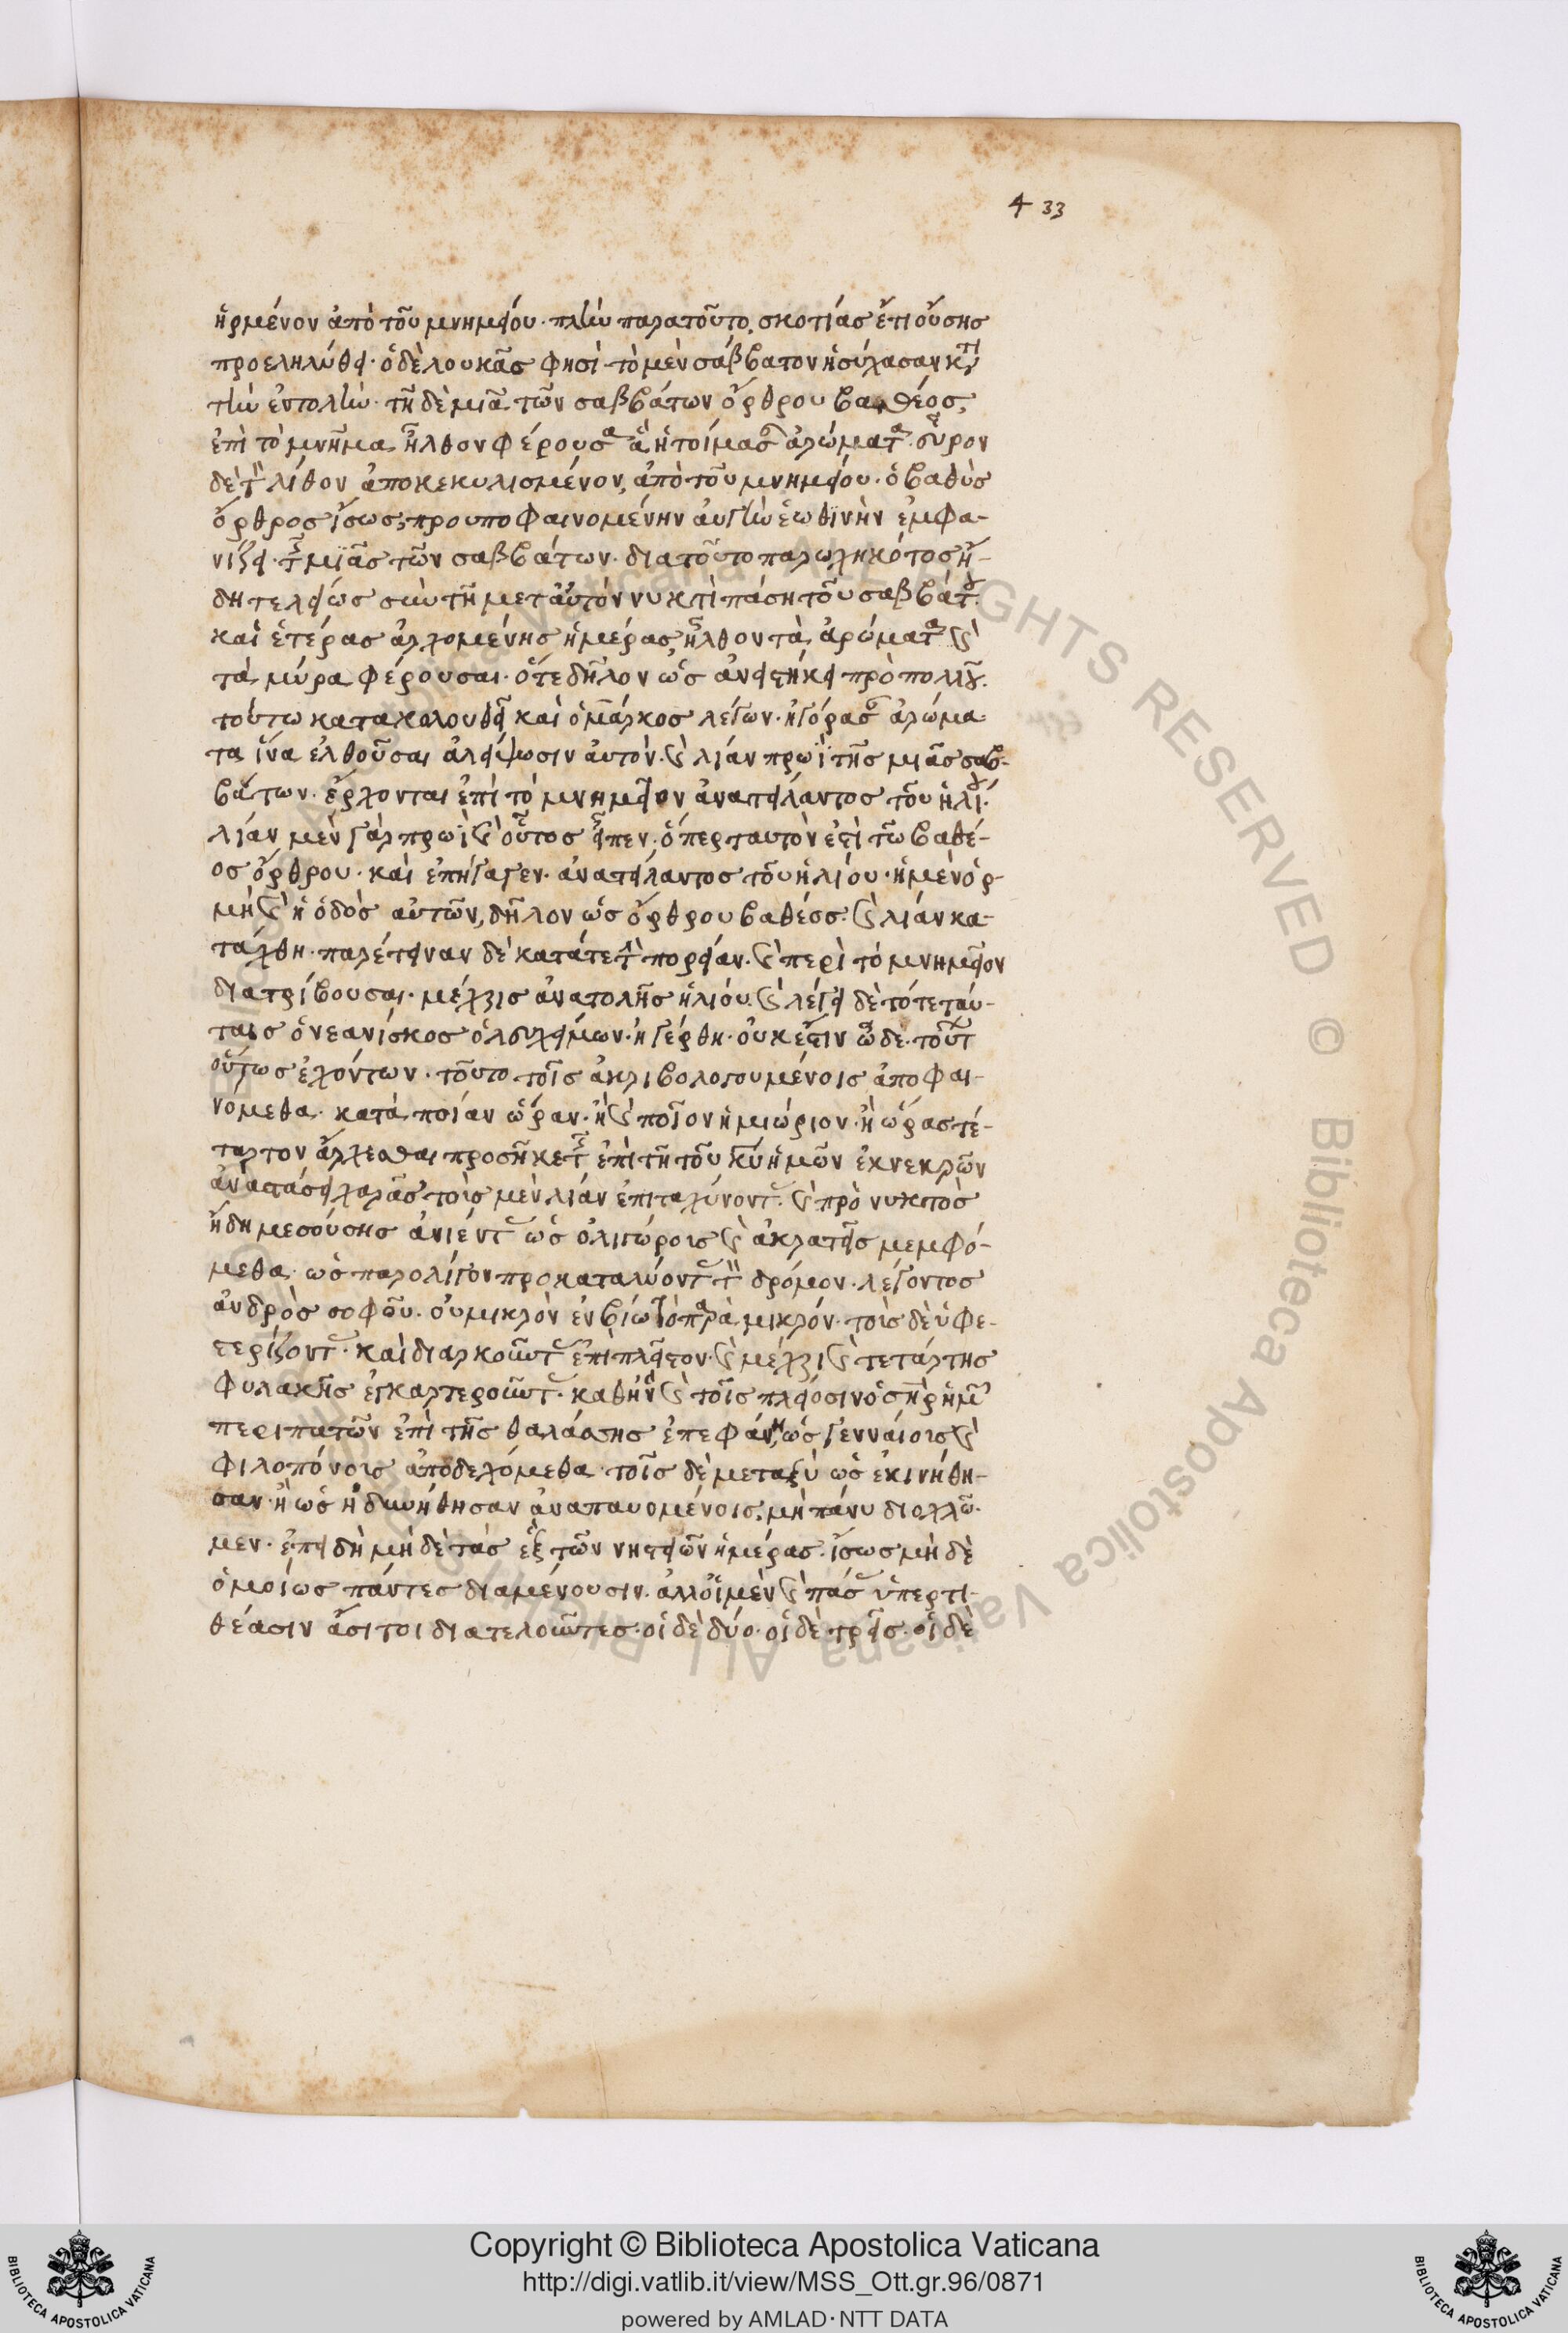 433
ἠρμένον ἀπὸ τοῦ μνημείου· πλὴν παρὰ τοῦτο, σκοτίας ἔτι οὔσης
προεληλύθει· ὁ δὲ λουκᾶς φησὶ· τὸ μὲν σάββατον ἡσύχασαν κατὰ
τὴν ἐντολὴν· τῆ δὲ μιᾶ τῶν σαββάτων ὄρθρου βαθέος,
ἐπὶ τὸ μνῆμα ἦλθον φέρουσαι ἃ ἡτοίμασαν ἀρώματα· εὗρον
δὲ τὸν λίθον ἀποκεκυλισμένον, ἀπὸ τοῦ μνημείου· ὁ βαθὺς
ὄρθρος ἴσως, προυποφαινομένην αὐγὴν ἑωθινὴν ἐμφα-
νίζει τῆς μιᾶς τῶν σαββάτων· διατοῦτο παρωχηκότος ἤ-
δη τελείως σὺν τῆ μετ αὐτὸν νυκτὶ πάση τοῦ σαββάτου
καὶ ἑτέρας ἀρχομένης ἡμέρας, ἦλθον τὰ ἀρώματα καὶ
τὰ μύρα φέρουσαι· ὅτε δῆλον ὡς ἀνειστήκει πρὸ πολλοῦ·
τούτω κατακολουθεῖ καὶ ὁ μάρκος λέγων· ἠγόρασαν ἀρώμα-
τα ἵνα ἐλθοῦσαι ἀλείψωσιν αὐτόν· καὶ λίαν πρωῒ τῆς μιᾶς σαβ-
βάτων· ἔρχονται ἐπὶ τὸ μνημεῖον ἀνατείλαντος τοῦ ἡλίου·
λίαν μὲν γὰρ πρωῒ καὶ οὗτος εἶπεν· ὅπερ ταυτὸν ἐστὶ τῶ βαθέ-
ος ὄρθρου· καὶ ἐπήγαγεν· ἀνατείλαντος τοῦ ἡλίου· ἡ μὲν ὁρ-
μὴ καὶ ἡ ὁδὸς αὐτῶν, δῆλον ὡς ὄρθρου βαθέος· καὶ λίαν κα-
τήρχθη· παρέτειναν δὲ κατά τε τὴν πορείαν· καὶ περὶ τὸ μνημεῖον
διατρίβουσαι· μέχρις ἀνατολῆς ἡλίου· καὶ λέγει δὲ τότε ταύ-
ταις ὁ νεανίσκος ὁ λευχείμων· ἠγέρθη· οὐκ ἔστιν ὧδε· τούτων
οὕτως ἐχόντων· τοῦτο τοῖς ἀκριβολογουμένοις ἀποφαι-
νόμεθα· κατὰ ποίαν ὥραν· ἢ καὶ ποῖον ἡμιώριον· ἢ ὥρας τέ-
ταρτον ἄρχεσθαι προσῆκε τῆς ἐπὶ τῆ τοῦ κυ ἡμῶν ἐκ νεκρῶν
ἀναστάσει χαρᾶς· τοῖς μὲν λίαν ἐπιταχύνουσιν· καὶ πρὸ νυκτὸς
ἤδη μεσούσης ἀνιέντας ὡς ὀλιγώροις καὶ ἀκρατεῖς μεμφό-
μεθα· ὡς παρολίγον προκαταλύοντας τὸν δρόμον· λέγοντος
ἀνδρὸς σοφοῦ· οὐ μικρὸν ἐν βίω τὸ παρὰ μικρόν· τοῖς δὲ ὑφε-
τερίζοντας· καὶ διαρκοῦντας ἐπὶ πλεῖστον· καὶ μέχρι καὶ τετάρτης
φυλακῆς ἐγκαρτεροῦντας· καθ ἣν καὶ τοῖς πλέοσιν ὁ σηρ ἡμῶν
περιπατῶν ἐπὶ τῆς θαλάσσης ἐπεφάνη, ὡς γενναίοις καὶ
φιλοπόνοις ἀποδεχόμεθα· τοῖς δὲ μεταξὺ ὡς ἐκινήθη-
σαν· ἢ ὡς ἠδυνήθησαν ἀναπαυομένοις, μὴ πάνυ διοχλῶ-
μεν· ἐπειδὴ μὴ δὲ τὰς ἓξ τῶν νηστειῶν ἡμέρας· ἴσως μὴ δὲ
ὁμοίως πάντες διαμένουσιν· ἀλλ οἱ μὲν καὶ πάσας ὑπερτι-
θέασιν ἄσιτοι διατελοῦντες· οἱ δὲ δύο· οἱ δὲ τρεῖς· οἱ δὲ
Copyright © Biblioteca Apostolica Vaticana
http://digi.vatlib.it/view/MSS_Ott.gr.96/0871
powered by AMLAD · NTT DATA
BIBLIOTECA APOSTOLICA VATICANA
BIBLIOTECA APOSTOLICA VATICANA